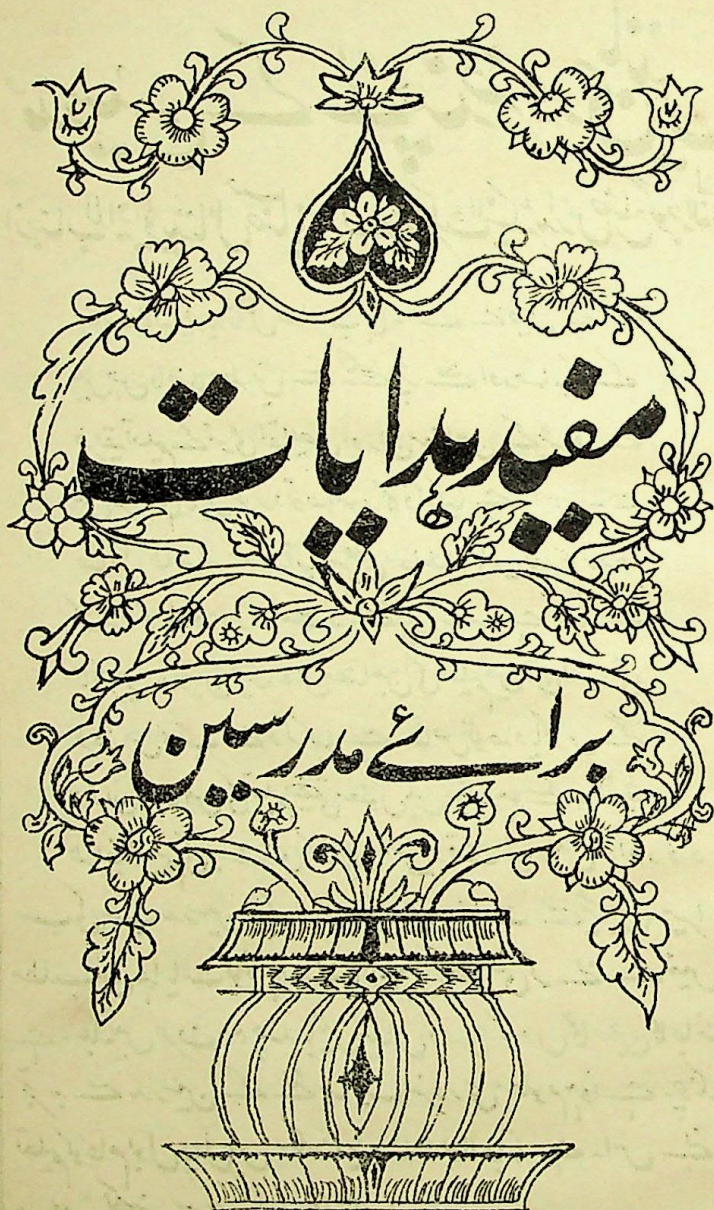 مفید ہدایات
برائے مدرسین